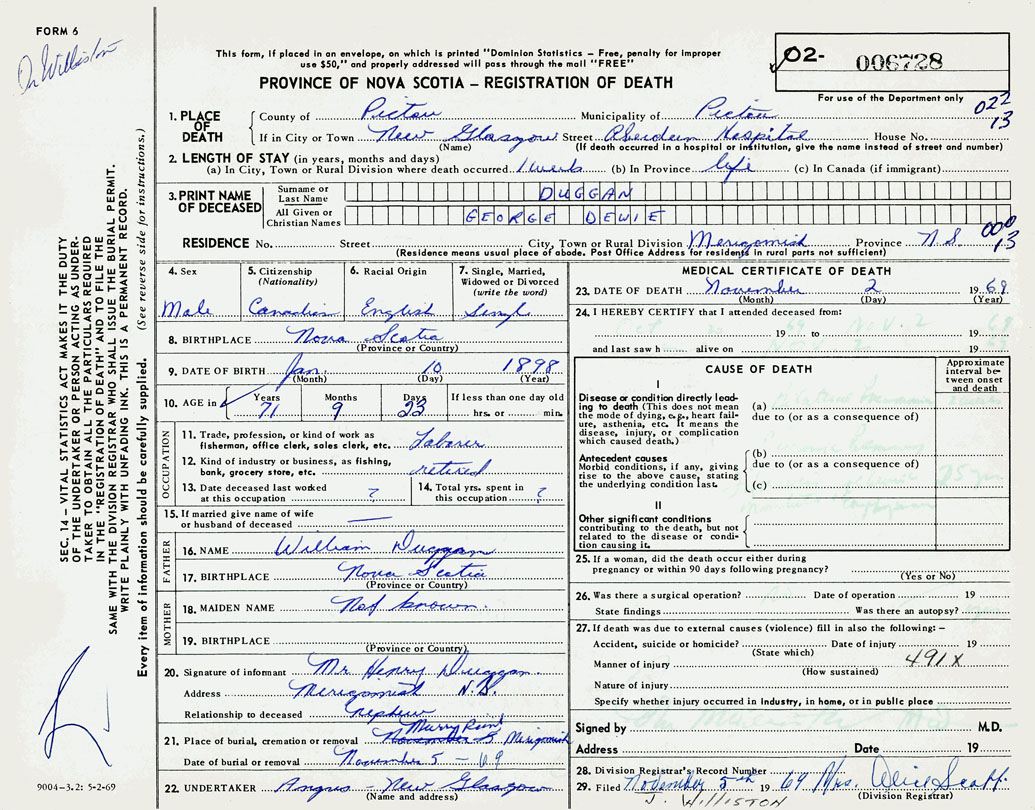 FORM 6
Dr Williston
This form, if placed in an envelope, on which is printed "Dominion Statistics – Free, penalty for improper
use $50," and properly addressed will pass through the mail "FREE"
PROVINCE OF NOVA SCOTIA – REGISTRATION OF DEATH
02- 006728
For use of the Department only
022
13
1. PLACE OF DEATH
County of Pictou Municipality of Pictou
If in City or Town New Glasgow Street Aberdeen Hospital House No.
(Name) (If death occurred in a hospital or institution, give the name instead of street and number)
2. LENGTH OF STAY (in years, months and days)
(a) In City, Town or Rural Division where death occurred 1 week (b) In Province life (c) In Canada (if immigrant)
3. PRINT NAME OF DECEASED
Surname or Last Name DUGGAN
All Given or Christian Names GEORGE DEWIE
000
13
RESIDENCE No. Street City, Town or Rural Division Merigomish Province N.S.
(Residence means usual place of abode. Post Office Address for residents in rural parts not sufficient)
4. Sex
Male
5. Citizenship
(Nationality)
Canadian
6. Racial Origin
English
7. Single, Married,
Widowed or Divorced
(write the word)
Single
8. BIRTHPLACE Nova Scotia
(Province or Country)
9. DATE OF BIRTH Jan. 10 1898
(Month) (Day) (Year)
10. AGE in Years Months Days If less than one day old
71 9 23 hrs. or min.
OCCUPATION
11. Trade, profession, or kind of work as
fisherman, office clerk, sales clerk, etc. Laborer
12. Kind of industry or business, as fishing,
bank, grocery store, etc. retired
13. Date deceased last worked
at this occupation ?
14. Total yrs. spent in
this occupation ?
15. If married give name of wife
or husband of deceased —
FATHER
16. NAME William Duggan
17. BIRTHPLACE Nova Scotia
(Province or Country)
MOTHER
18. MAIDEN NAME Not known.
19. BIRTHPLACE
(Province or Country)
20. Signature of informant Mr Henry Duggan.
Address Merigomish N.S.
Relationship to deceased nephew
21. Place of burial, cremation or removal Merigomish
Date of burial or removal November 5 – 69
22. UNDERTAKER Angus – New Glasgow
(Name and address)
MEDICAL CERTIFICATE OF DEATH
23. DATE OF DEATH November 2 1969
(Month) (Day) (Year)
24. I HEREBY CERTIFY that I attended deceased from:
19 69 to Nov. 2 19 69
and last saw h alive on 19
CAUSE OF DEATH
Approximate
interval be-
tween onset
and death
I
Disease or condition directly lead-
ing to death (This does not mean
the mode of dying, e.g., heart fail-
ure, asthenia, etc. It means the
disease, injury, or complication
which caused death.)
(a)
due to (or as a consequence of)
Antecedent causes
Morbid conditions, if any, giving
rise to the above cause, stating
the underlying condition last.
(b)
due to (or as a consequence of)
(c)
II
Other significant conditions
contributing to the death, but not
related to the disease or condi-
tion causing it.
25. If a woman, did the death occur either during
pregnancy or within 90 days following pregnancy?
(Yes or No)
26. Was there a surgical operation? Date of operation 19
State findings Was there an autopsy?
27. If death was due to external causes (violence) fill in also the following: –
Accident, suicide or homicide? Date of injury 19
(State which)
Manner of injury 491X
(How sustained)
Nature of injury
Specify whether injury occurred in industry, in home, or in public place
Signed by M.D.
Address Date 19
28. Division Registrar's Record Number
29. Filed November 5th 1969 Mrs. Alice
(Division Registrar)
J. WILLISTON
SEC. 14 – VITAL STATISTICS ACT MAKES IT THE DUTY
OF THE UNDERTAKER OR PERSON ACTING AS UNDER-
TAKER TO OBTAIN ALL THE PARTICULARS REQUIRED
IN THE "REGISTRATION OF DEATH" AND TO FILE THE
SAME WITH THE DIVISION REGISTRAR WHO SHALL ISSUE THE BURIAL PERMIT.
WRITE PLAINLY WITH UNFADING INK. THIS IS A PERMANENT RECORD.
Every item of information should be carefully supplied. (See reverse side for instructions.)
9004-3.2: 5-2-69